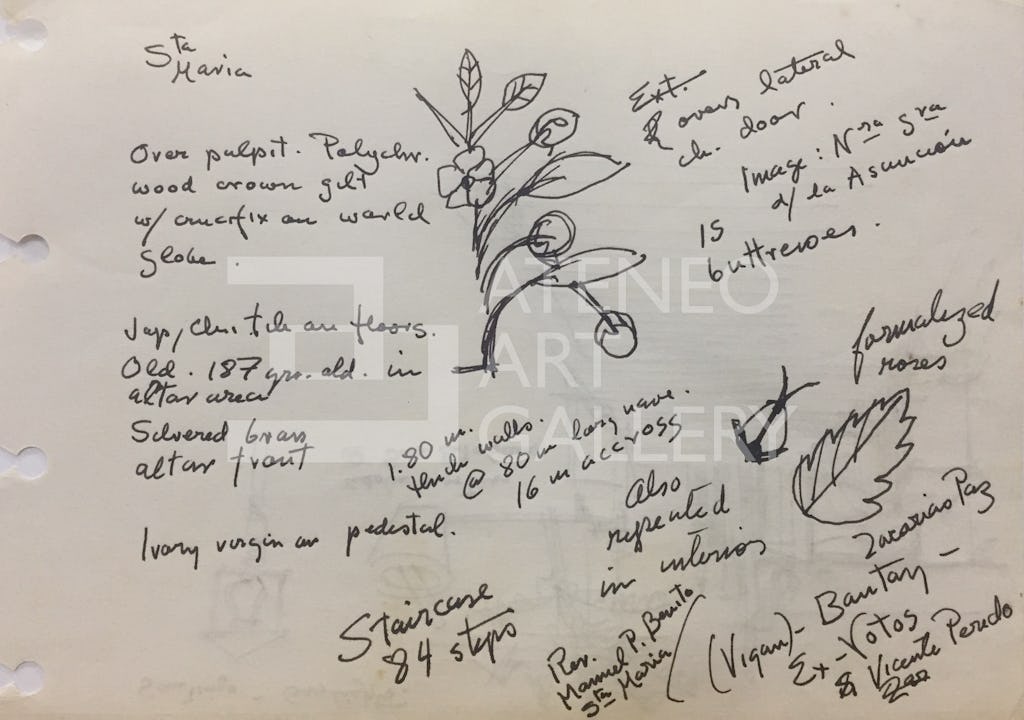 Sta
Maria
Over pulpit. Polychr.
wood crown gilt
w/ crucifix on world
globe.
Jap, Chi tile on floors.
Old. 187 yrs. old. in
altar area
Silvered brass
altar front
Ivory virgin on pedestal.
Ext.
R overs lateral
ch. door.
Image: Nra Sra
d/ la Asunción
15
buttresses.
formalized
roses
1.80 m.
thick walls.
@ 80 m long nave.
16 m accross
Also
repeated
in interior
Staircase
84 steps
Rev.
Manuel P. Benito
Sta Maria
Zacarias Paz
(Vigan) - Bantay -
Ex-Votos
& Vicente Peredo
ATENEO
ART
GALLERY